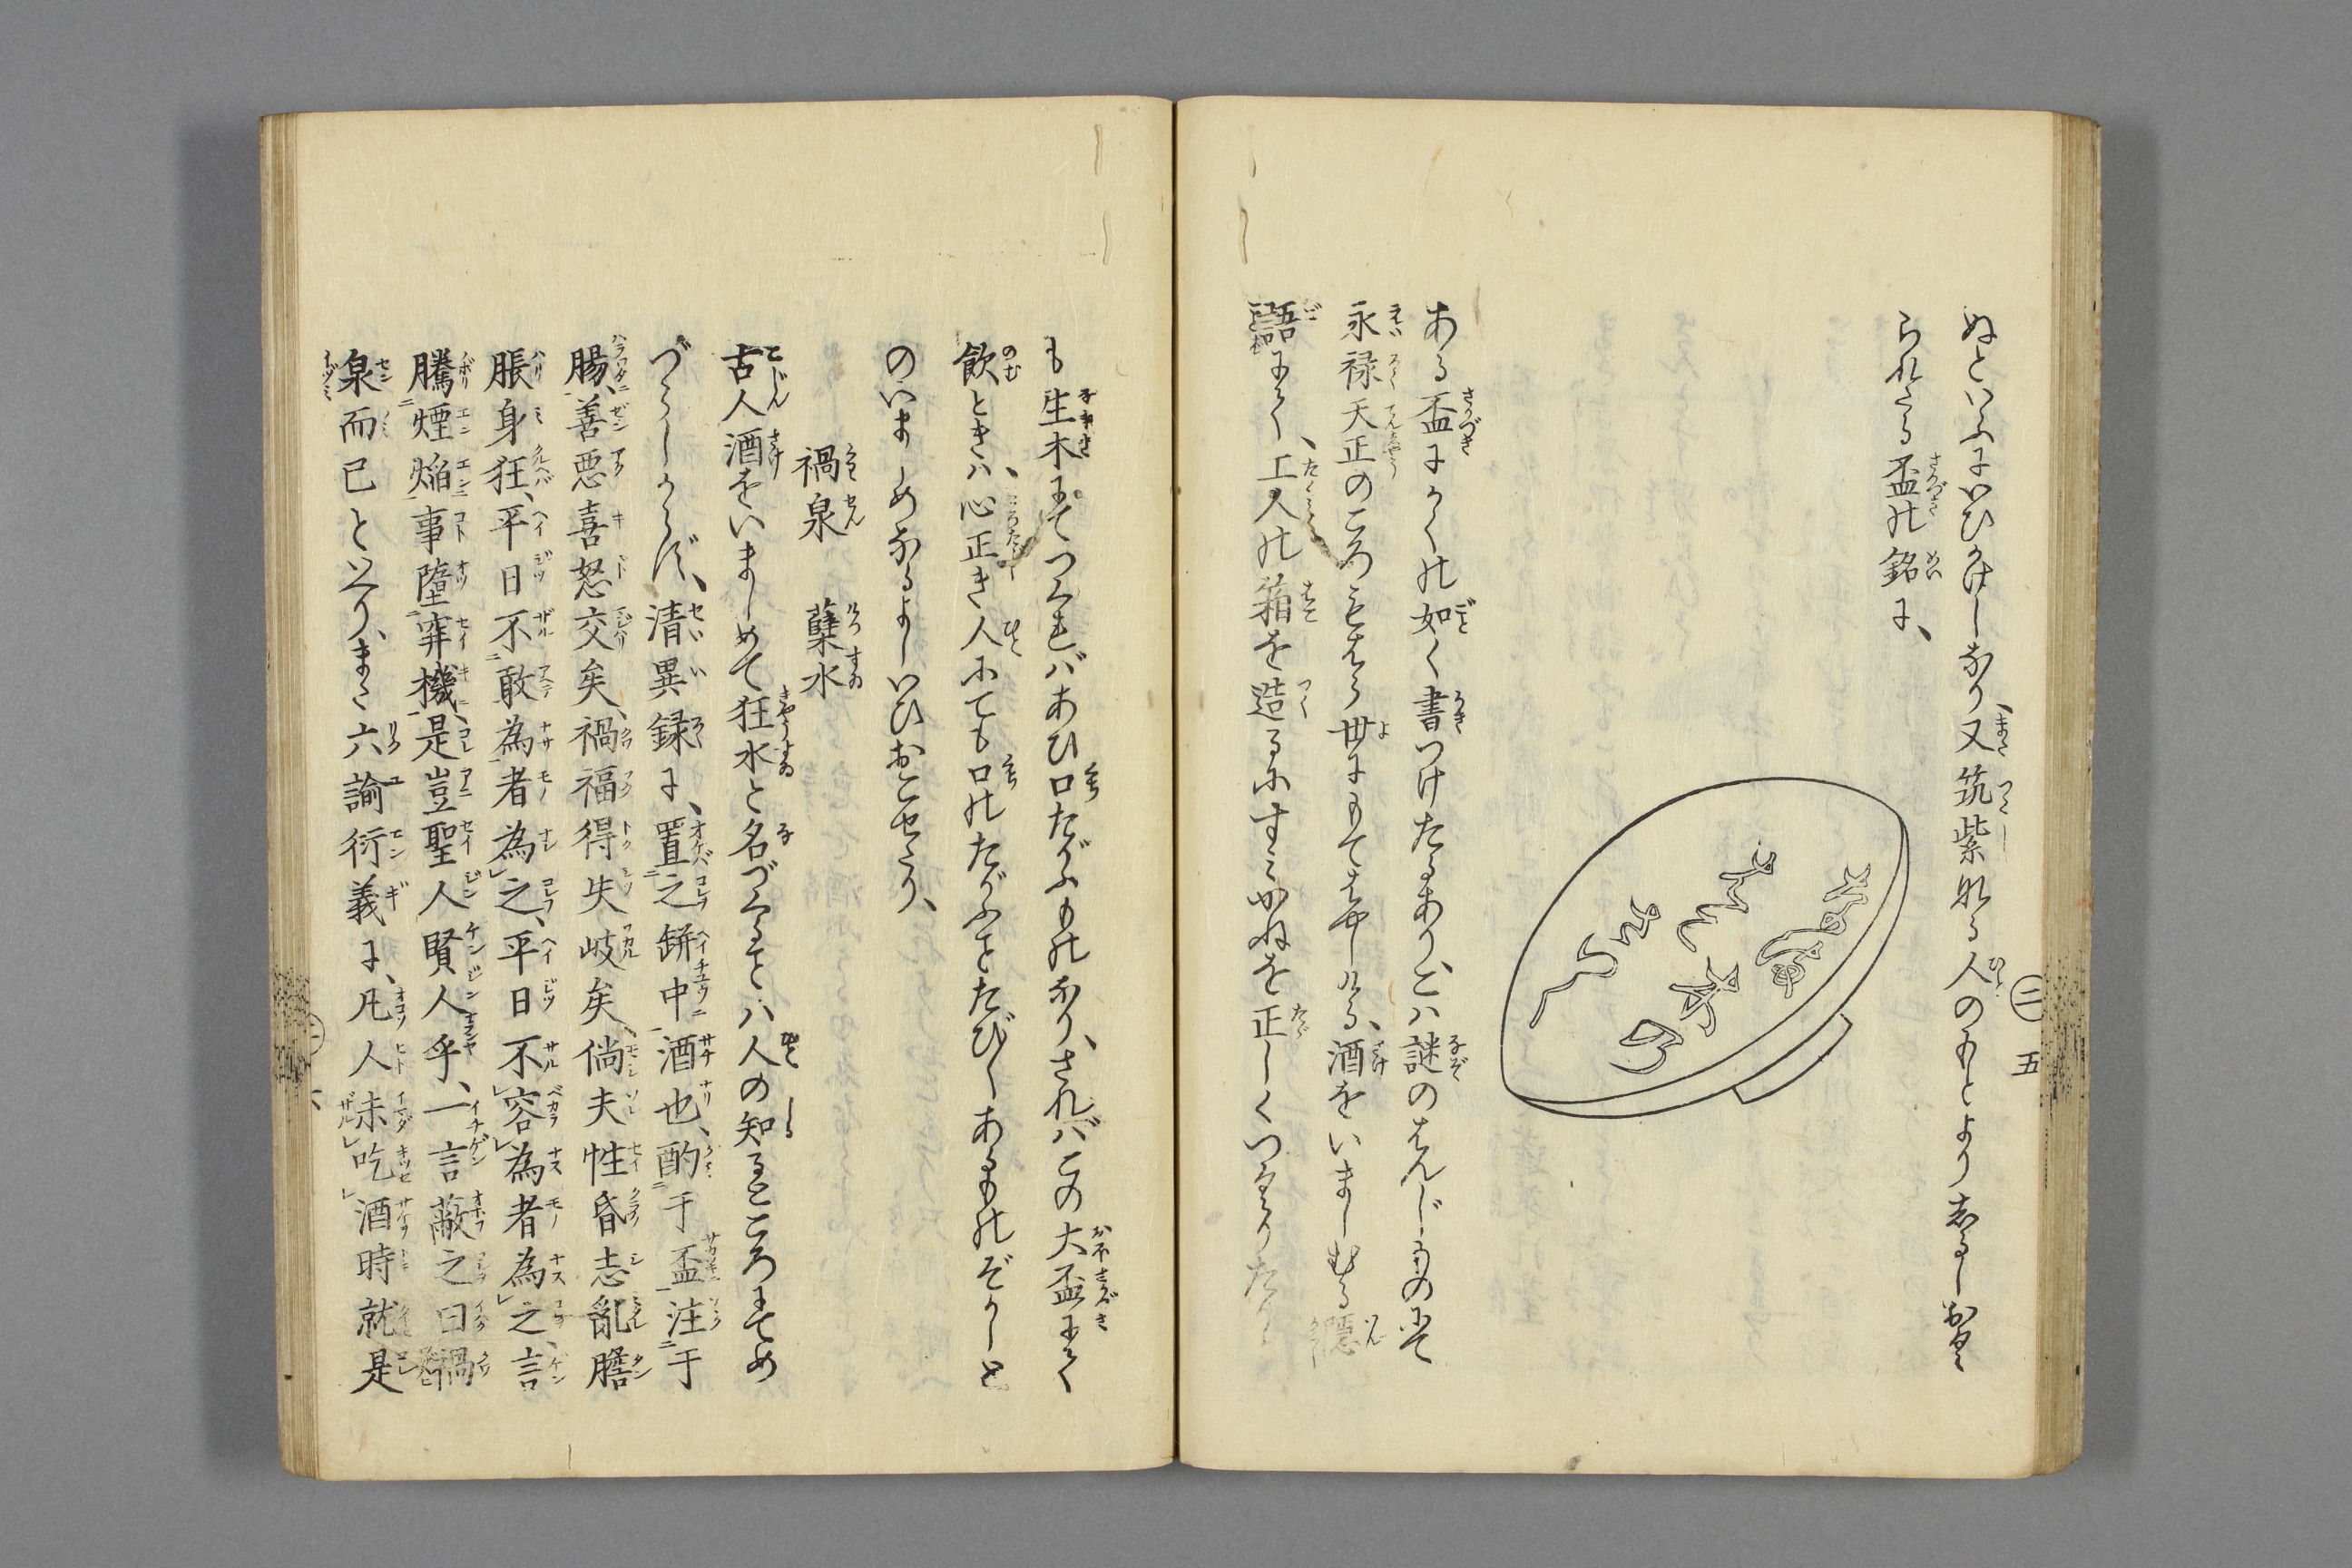 ぬといふにいひかけしなり、又筑紫なる人のもとよりしるしおく
られたる盃の銘に、
ある盃にかくの如く書つけたるあり、こハ謎のはんじものにて
永禄天正のころもはら世にもてはやしける、酒をいましむる隠
語にて、工人の箱を造るにすみかねを正しくつくりたり
も生木にてつくれバあひ口たがふものなり、されバこの大盃にて
飲ときハ、心正き人にても口のたがふことたび〳〵あるものぞかしと
のいましめなるよしいひおこせたり、
禍泉 蘖水
古人酒をいましめて狂水と名づくることハ人の知るところにてめ
づらしからず、清異録に、置之缾中酒也、酌于盃注于
腸、善悪喜怒交矣、禍福得失岐矣、倘夫性昏志亂膽
脹身狂、平日不敢為者為之、平日不容為者為之、言
騰煙焔事墮穽機、是豈聖人賢人乎、一言蔽之曰禍
泉而已といへり、また六諭衍義に、凡人未吃酒時就是
二 五